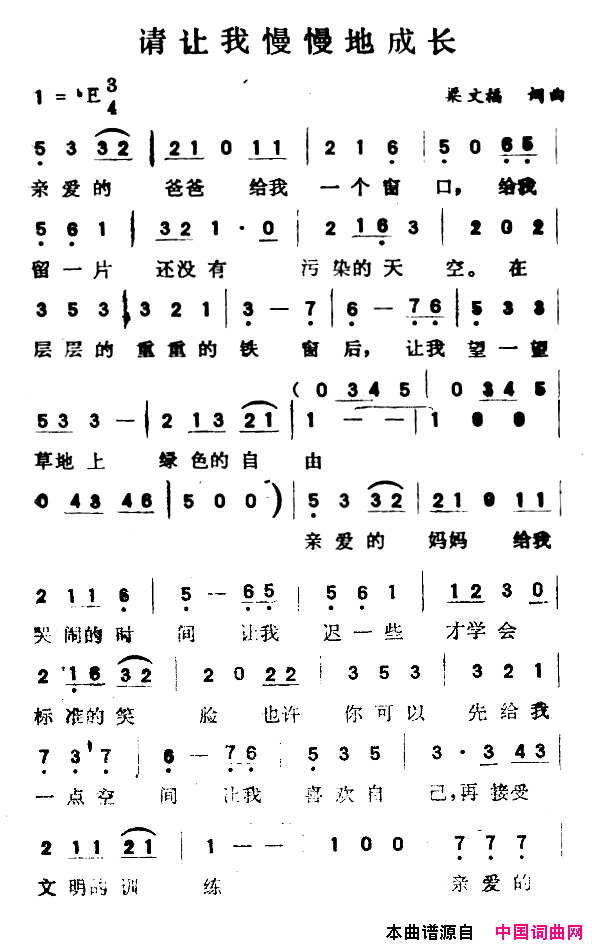 请让我慢慢地成长
1 = ♭E 3/4
梁文福 词曲
5 3 32 | 21 0 11 | 2 1 6 | 5 0 65 |
亲爱的 爸爸 给我 一个窗 口，给我
5 6 1 | 321 · 0 | 2 16 3 | 2 0 2 |
留一片 还没有 污染的天 空。在
3 5 3 | 3 2 1 | 3 — 7 | 6 — 76 | 5 3 3 |
层层的 重重的铁 窗后，让我 望一望
(0 345 | 0 345
53 3 — | 2 13 21 | 1 — — | 1 0 0 |
草地上 绿色的自 由
0 43 46 | 5 0 0) | 5 3 32 | 21 0 11 |
亲爱的 妈妈 给我
2 11 6 | 5 — 65 | 5 6 1 | 12 3 0 |
哭闹的时 间 让我 迟一些 才学会
2 16 32 | 2 0 22 | 3 5 3 | 3 2 1 |
标准的笑 脸 也许 你可以 先给我
7 3 7 | 6 — 76 | 5 3 5 | 3 · 3 43 |
一点空 间 让我 喜欢自 己，再接受
2 11 21 | 1 — — | 1 0 0 | 7 7 7 |
文明的训 练 亲爱的
本曲谱源自 中国词曲网